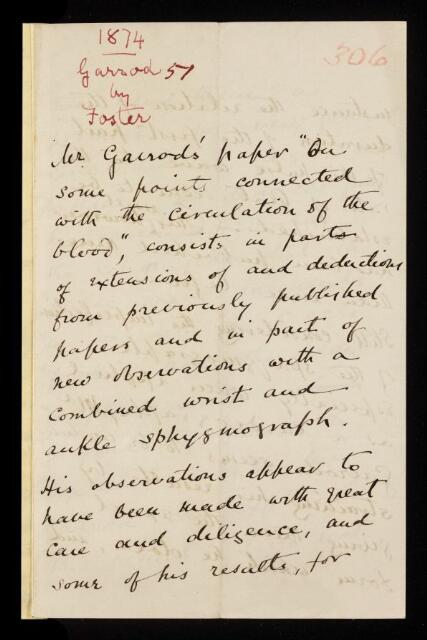 1874
306
Garrod 51
by
Foster
Mr. Garrod's paper "On
some points connected
with the circulation of the
blood", consists in parts
of extensions of and deductions
from previously published
papers and in part of
new observations with a
combined wrist and
ankle sphygmograph.
His observations appear to
have been made with great
care and diligence, and
some of his results, for